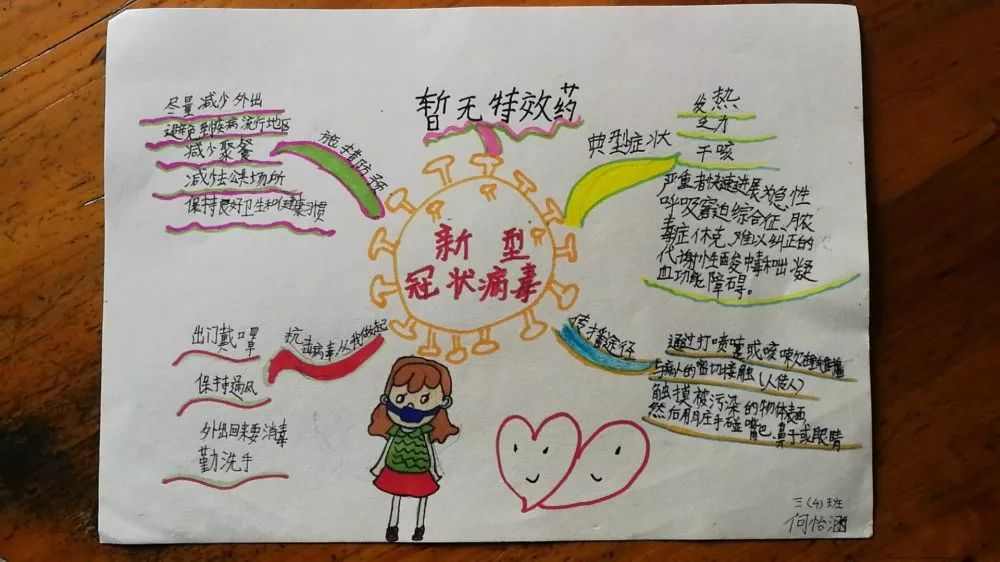 暂无特效药
新型
冠状病毒
尽量减少外出
避免到疾病流行地区
减少聚餐
减少去公共场所
保持良好卫生和健康习惯
施措防预
典型症状
发热
乏力
干咳
严重者快速进展为急性
呼吸窘迫综合征、脓
毒症休克、难以纠正的
代谢性酸中毒和出凝
血功能障碍。
出门戴口罩
保持通风
外出回来要消毒
勤洗手
抗毒病毒从我做起
传播途径
通过打喷嚏或咳嗽
与病人的密切接触(人传人)
触摸被污染的物体表面
然后用脏手碰嘴巴、鼻子或眼睛
三(4)班
何怡涵